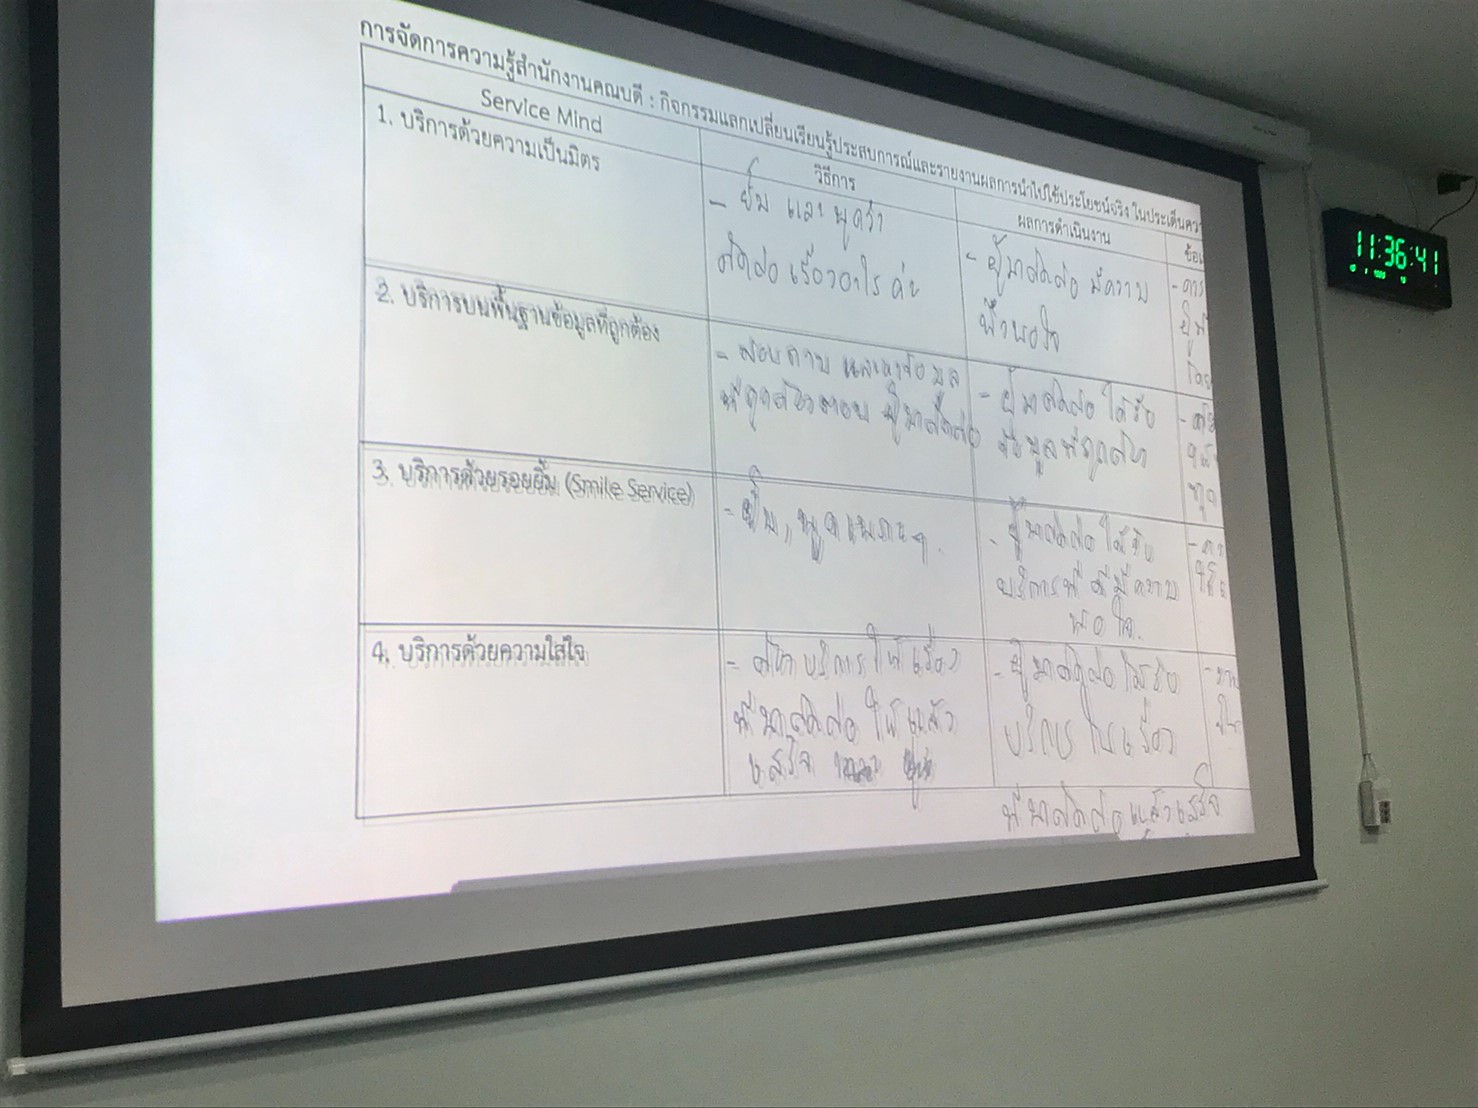 การจัดการความรู้สำนักงานคณบดี : กิจกรรมแลกเปลี่ยนเรียนรู้ประสบการณ์และรายงานผลการนำไปใช้ประโยชน์จริง ในประเด็นความ
Service Mind
วิธีการ
ผลการดำเนินงาน
ข้อเ
1. บริการด้วยความเป็นมิตร
- ยิ้ม และ พูดว่า
ติดต่อ เรื่องอะไร ค่ะ
- ผู้มาติดต่อ มีความ
พึงพอใจ
2. บริการบนพื้นฐานข้อมูลที่ถูกต้อง
- สอบถาม และหาข้อมูล
ที่ถูกต้องตอบ ผู้มาติดต่อ
- ผู้มาติดต่อ ได้รับ
ข้อมูลที่ถูกต้อง
3. บริการด้วยรอยยิ้ม (Smile Service)
- ยิ้ม, พูดเพราะๆ
- ผู้มาติดต่อ ได้รับ
บริการที่ ดีมีความ
พอใจ.
4. บริการด้วยความใส่ใจ
- บริการ ให้ เรื่อง
ที่มาติดต่อ ให้แล้ว
เสร็จ
- ผู้มาติดต่อ ได้รับ
บริการ ในเรื่อง
ที่มาติดต่อ แล้วเสร็จ
11:36:41